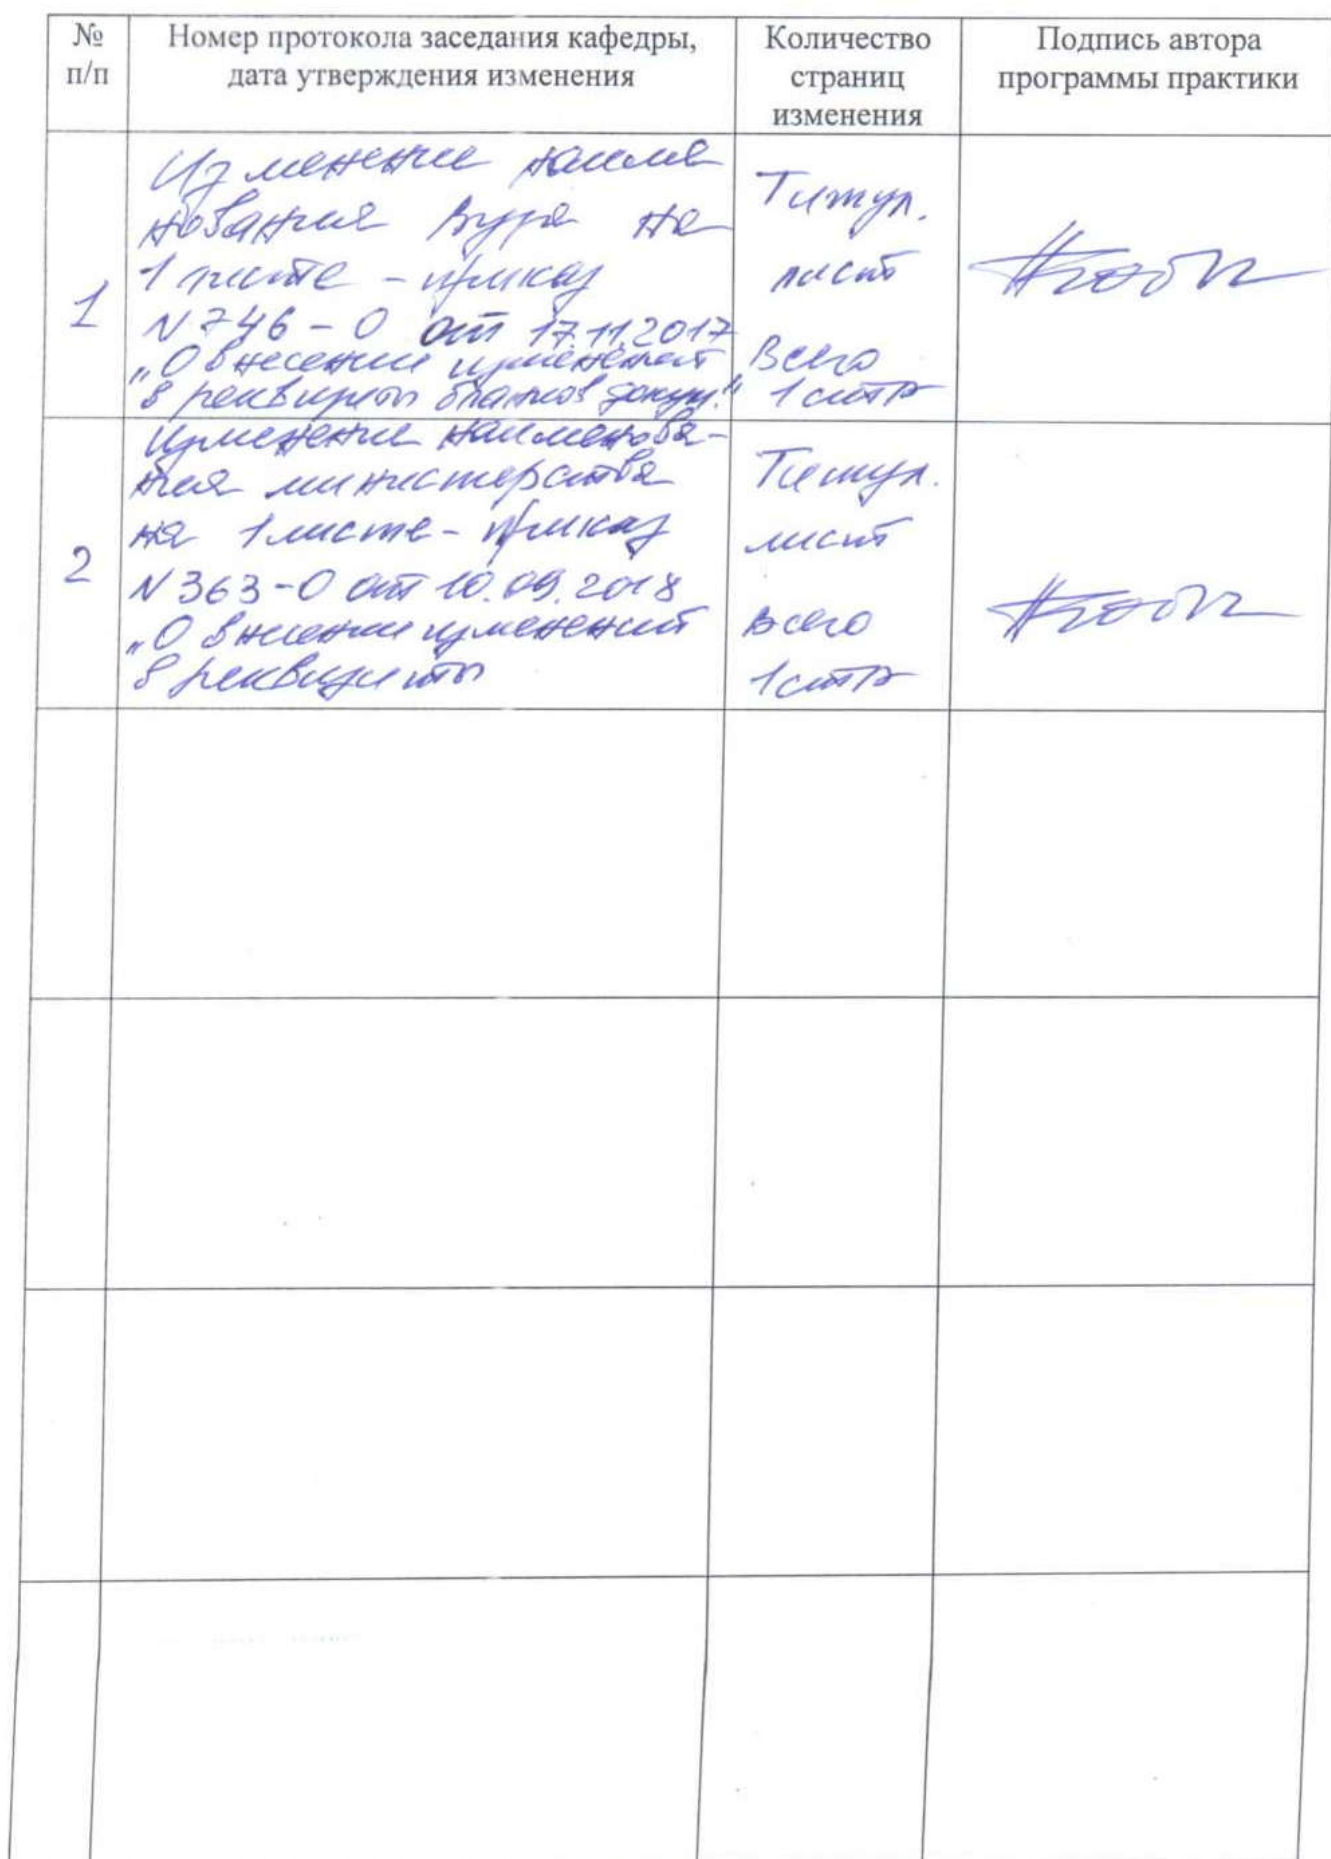 № п/п
Номер протокола заседания кафедры,
дата утверждения изменения
Количество
страниц
изменения
Подпись автора
программы практики
1
Изменение наиме
нования вуза на
1 листе - приказ
N 746-О от 17.11.2017
„О внесении изменений
в реквизиты бланков докум."
Титул.
лист
Всего
1 стр
2
Изменение наименова-
ния министерства
на 1 листе - приказ
N 363-О от 10.09.2018
„О внесении изменений
в реквизиты
Титул.
лист
всего
1 стр